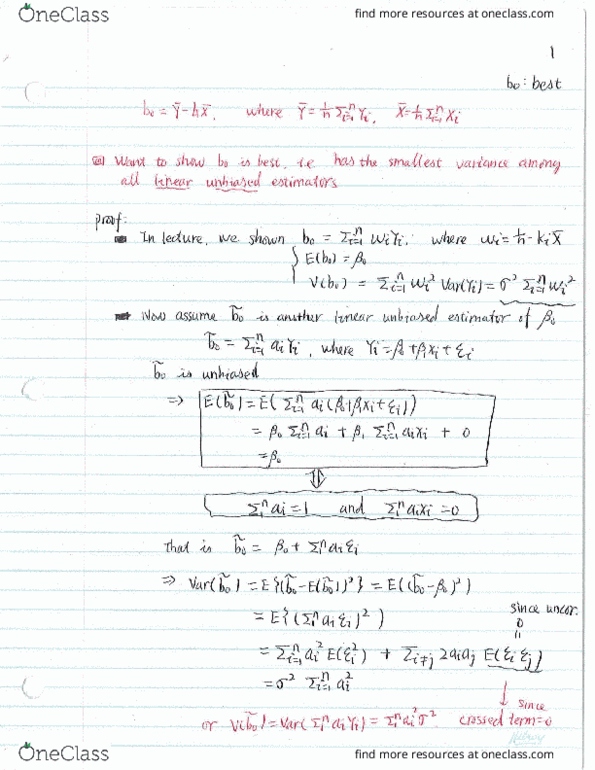 OneClass
find more resources at oneclass.com
1
b₀: best
b₀ = Ȳ - b₁X̄, where Ȳ = 1/n Σᵢ₌₁ⁿ Yᵢ, X̄ = 1/n Σᵢ₌₁ⁿ Xᵢ
Want to show b₀ is best, i.e. has the smallest variance among
all linear unbiased estimators
proof:
In lecture, we shown b₀ = Σᵢ₌₁ⁿ wᵢYᵢ, where wᵢ = 1/n - kᵢX̄
E(b₀) = β₀
V(b₀) = Σᵢ₌₁ⁿ wᵢ² Var(Yᵢ) = σ² Σᵢ₌₁ⁿ wᵢ²
Now assume b̃₀ is another linear unbiased estimator of β₀
b̃₀ = Σᵢ₌₁ⁿ aᵢYᵢ, where Yᵢ = β₀ + β₁xᵢ + εᵢ
b̃₀ is unbiased
⇒ E(b̃₀) = E( Σᵢ₌₁ⁿ aᵢ(β₀+β₁xᵢ+εᵢ))
= β₀ Σᵢ₌₁ⁿ aᵢ + β₁ Σᵢ₌₁ⁿ aᵢxᵢ + 0
= β₀
⇕
Σ₁ⁿ aᵢ = 1 and Σ₁ⁿ aᵢxᵢ = 0
that is b̃₀ = β₀ + Σ₁ⁿ aᵢεᵢ
⇒ Var(b̃₀) = E{(b̃₀ - E(b̃₀))²} = E((b̃₀ - β₀)²)
= E{(Σ₁ⁿ aᵢεᵢ)²}
since uncor.
0
=
= Σᵢ₌₁ⁿ aᵢ² E(εᵢ²) + Σᵢ≠ⱼ 2aᵢaⱼ E(εᵢεⱼ)
= σ² Σᵢ₌₁ⁿ aᵢ²
since
or V(b̃₀) = Var(Σ₁ⁿ aᵢYᵢ) = Σ₁ⁿ aᵢ²σ² crossed term = 0
OneClass
find more resources at oneclass.com